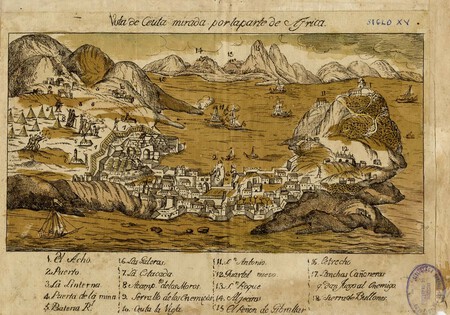 Vista de Ceuta mirada por la parte de Africa.
SIGLO XV
1. El Acho.
2. Puerto.
3. La Linterna
4. Puerta de la mina
5. Bateria Rl.
6. Las Valeras
7. La Estacada
8. Acamp. de los Moros
9. Serrallo de los Enemigos
10. Ceuta la Vieja
11. Sn. Antonio
12. Quartel nuevo
13. Sn. Roque
14. Algeciras
15. El Peñon de Gibraltar
16. Estrecho
17. Lanchas Cañoneras
18. Sierra de Bullones